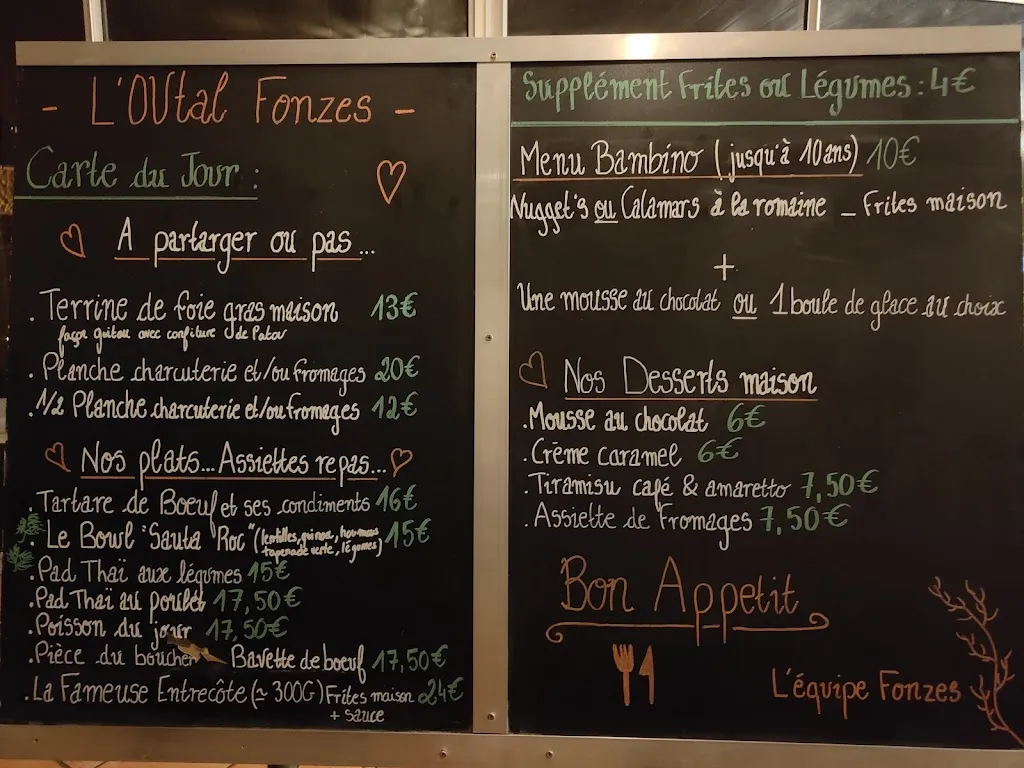 - L'OUtal Fonzes -
Carte du Jour :
A partarger ou pas...
. Terrine de foie gras maison 13€
façon gritou avec confiture de Patou
. Planche charcuterie et/ou fromages 20€
. 1/2 Planche charcuterie et/ou fromages 12€
Nos plats... Assiettes repas...
. Tartare de Boeuf et ses condiments 16€
. Le Bowl "Sauta Roc" (lentilles, quinoa, houmous 15€
tapenade verte, légumes)
. Pad Thaï aux légumes 15€
. Pad Thaï au poulet 17,50€
. Poisson du jour 17,50€
. Pièce du boucher Bavette de boeuf 17,50€
. La Fameuse Entrecôte (~ 300G) Frites maison 24€
+ sauce
Supplément Frites ou Légumes : 4€
Menu Bambino (jusqu'à 10 ans) 10€
Nugget's ou Calamars à la romaine _ Frites maison
+
Une mousse au chocolat ou 1 boule de glace au choix
Nos Desserts maison
. Mousse au chocolat 6€
. Crème caramel 6€
. Tiramisu café & amaretto 7,50€
. Assiette de Fromages 7,50€
Bon Appetit
L'équipe Fonzes